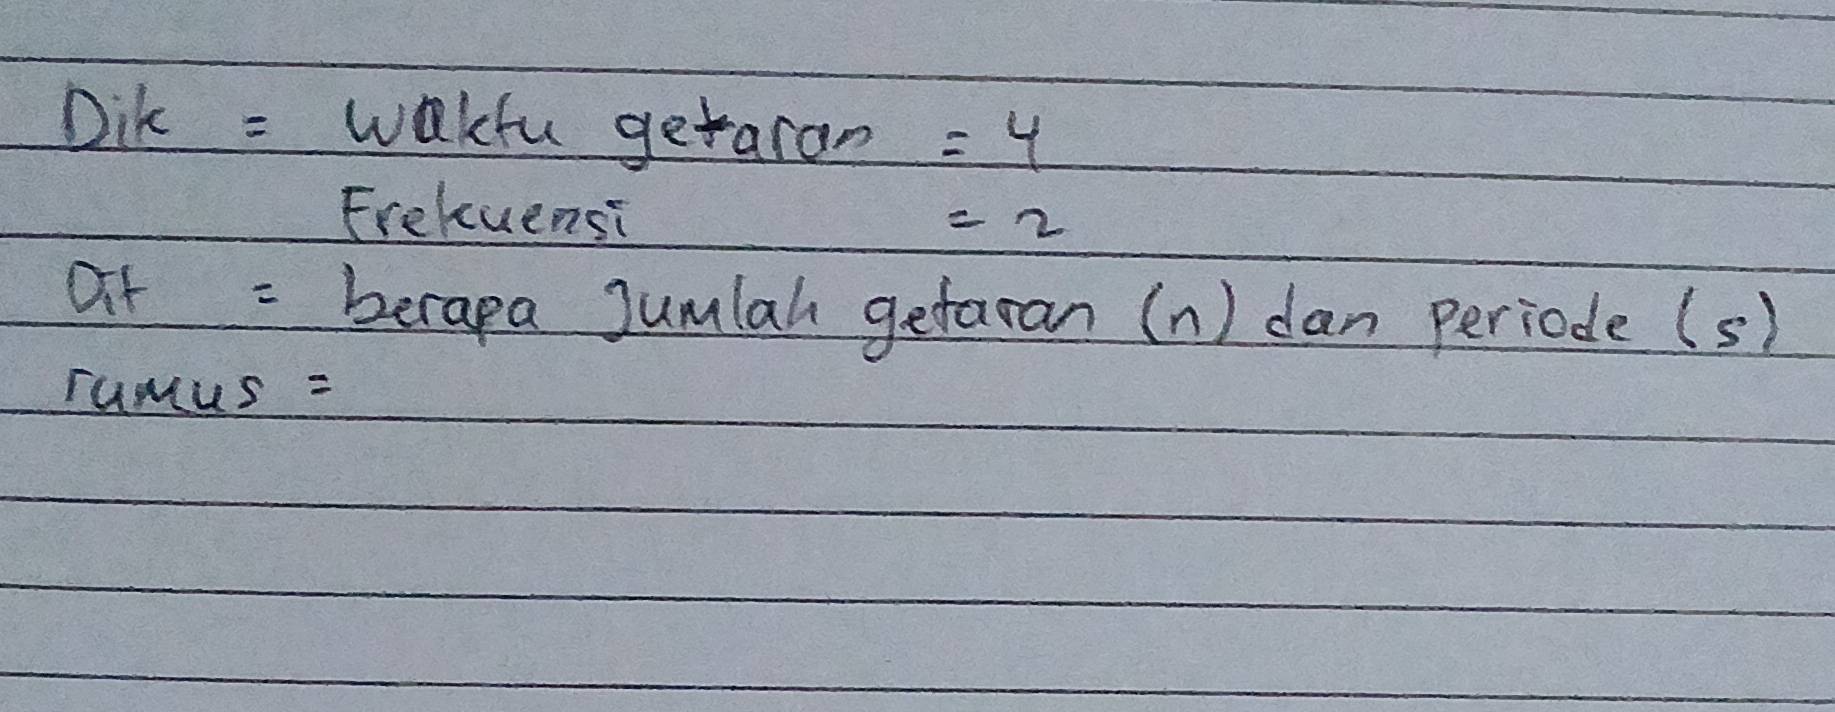 Dik = Waktu getaran = 4
Frekuensi = 2
Dit = berapa Jumlah getaran (n) dan Periode (s)
rumus =